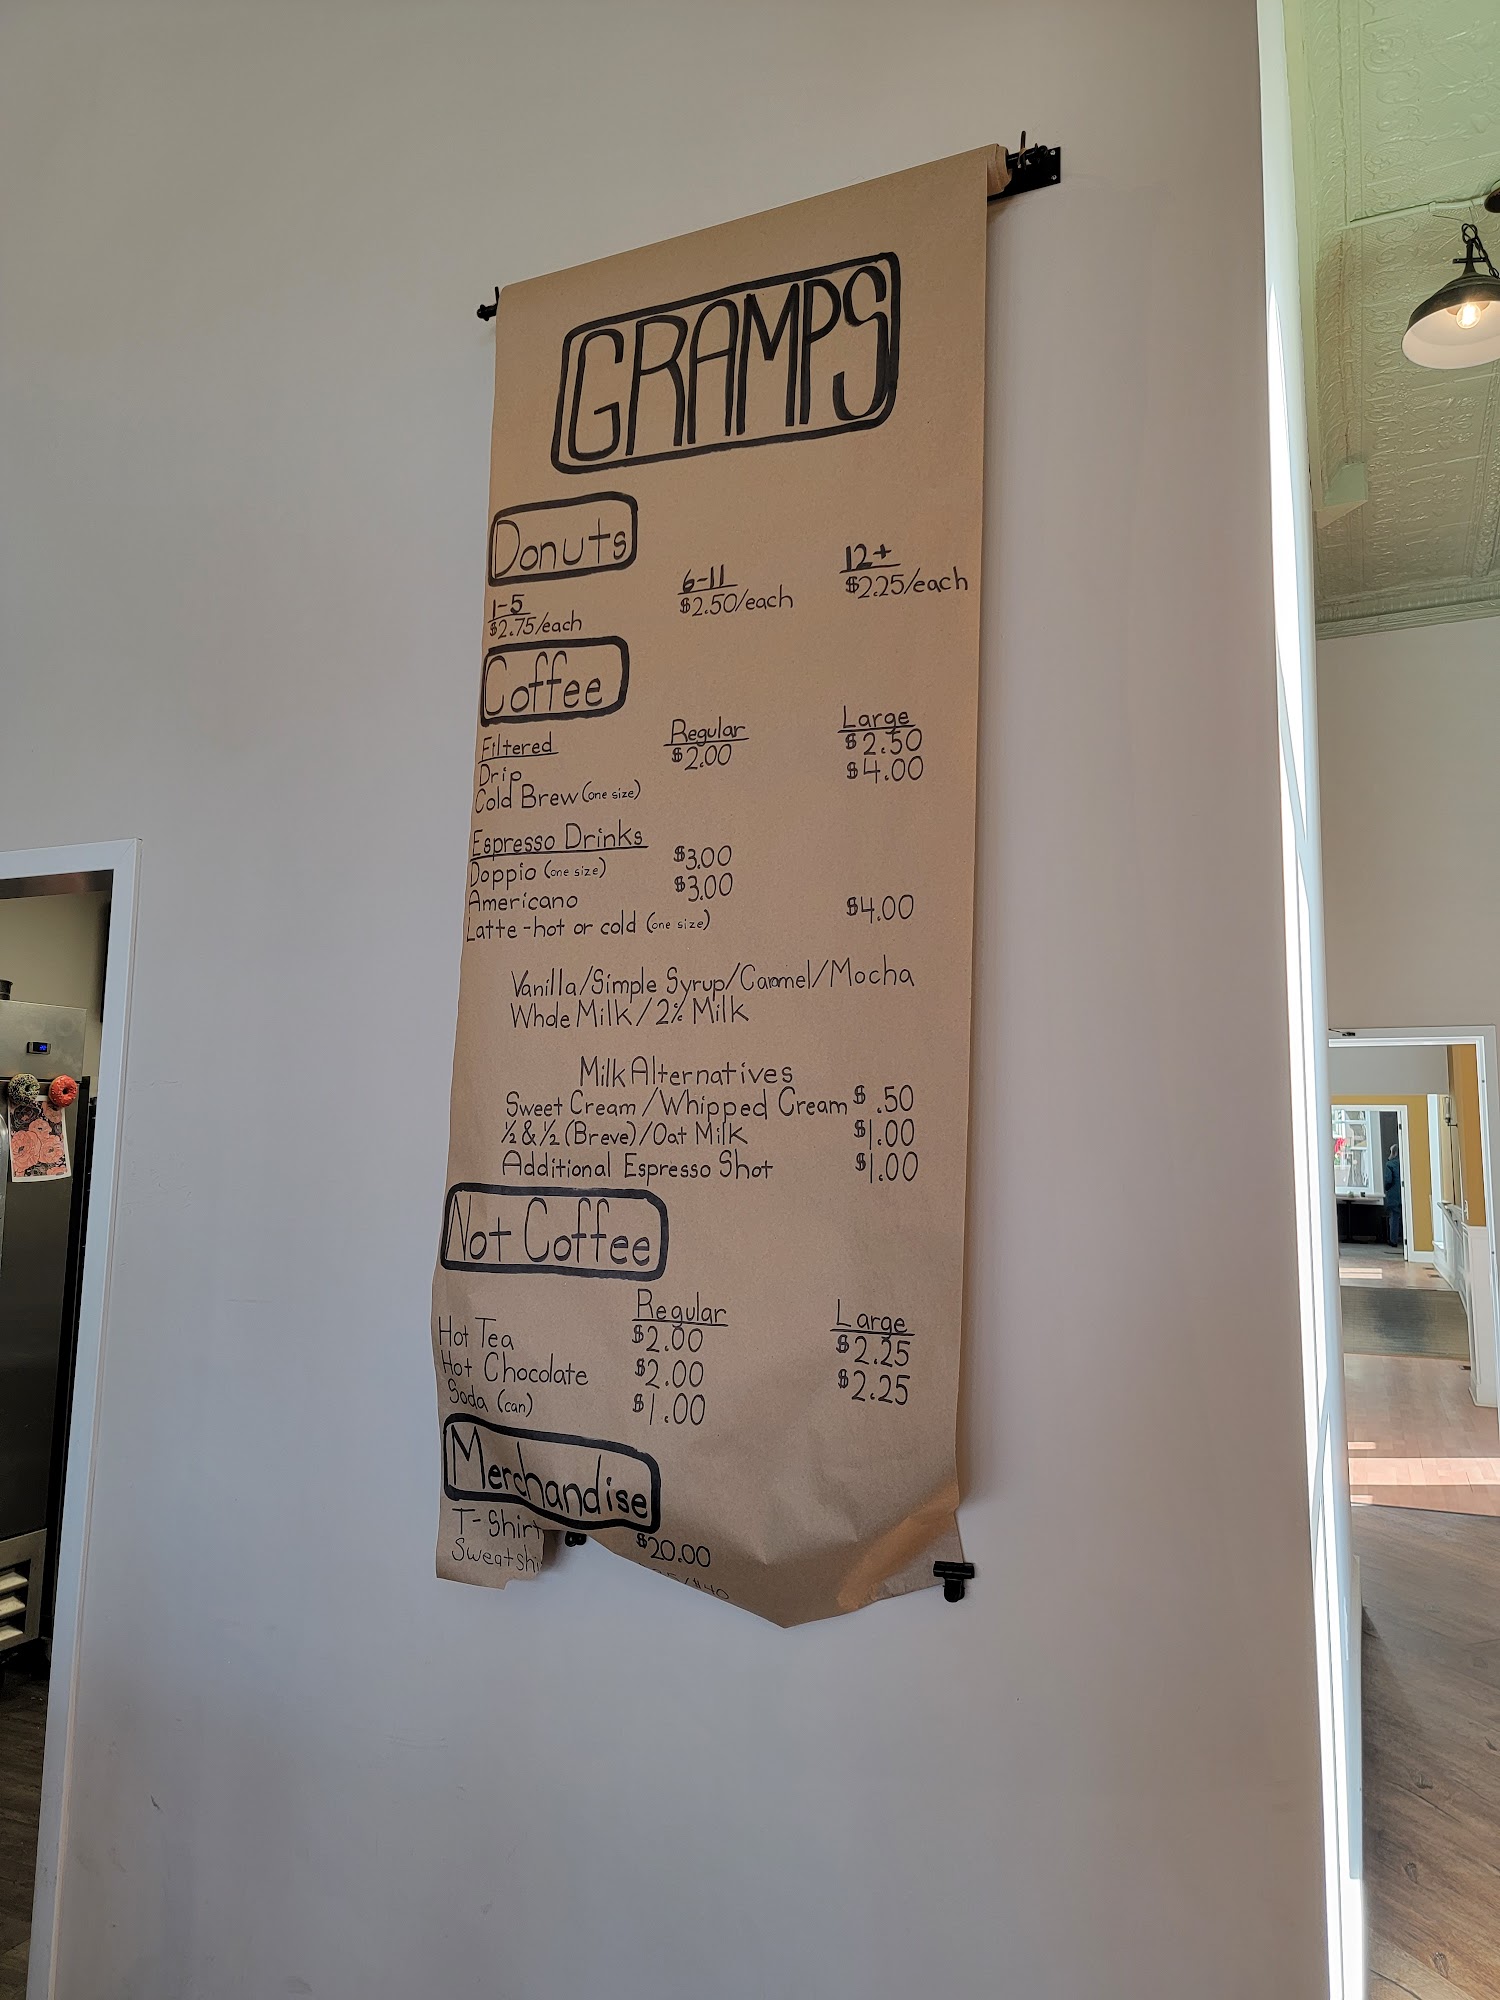 GRAMPS
Donuts
1-5 6-11 12+
$2.75/each $2.50/each $2.25/each
Coffee
Filtered Regular Large
Drip $2.00 $2.50
Cold Brew (one size) $4.00
Espresso Drinks
Doppio (one size) $3.00
Americano $3.00
Latte - hot or cold (one size) $4.00
Vanilla/Simple Syrup/Caramel/Mocha
Whole Milk/2% Milk
Milk Alternatives
Sweet Cream/Whipped Cream $.50
½ & ½ (Breve)/Oat Milk $1.00
Additional Espresso Shot $1.00
Not Coffee
Regular Large
Hot Tea $2.00 $2.25
Hot Chocolate $2.00 $2.25
Soda (can) $1.00
Merchandise
T-Shirt $20.00